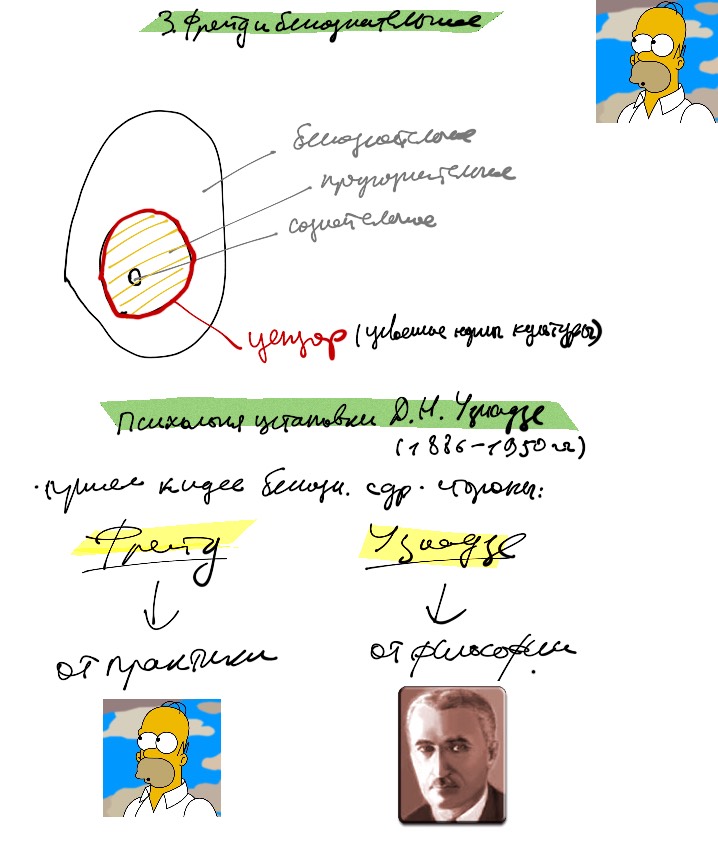 З. Фрейд и бессознательное
бессознательное
предсознательное
сознательное
цензор (усвоенные нормы культуры)
Психология установки Д.Н. Узнадзе
(1886-1950 гг)
· пришел к идее бессозн. с др. стороны:
Фрейд
Узнадзе
от практики
от философии.